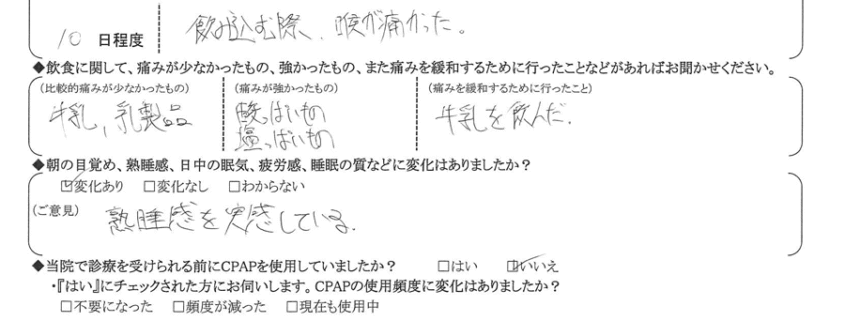 10 日程度 飲み込む際、喉が痛かった。
◆飲食に関して、痛みが少なかったもの、強かったもの、また痛みを緩和するために行ったことなどがあればお聞かせください。
(比較的痛みが少なかったもの) (痛みが強かったもの) (痛みを緩和するために行ったこと)
牛乳, 乳製品 酸っぱいもの 牛乳を飲んだ.
塩っぱいもの
◆朝の目覚め、熟睡感、日中の眠気、疲労感、睡眠の質などに変化はありましたか？
☑変化あり □変化なし □わからない
(ご意見) 熟睡感を実感している.
◆当院で診療を受けられる前にCPAPを使用していましたか？ □はい ☑いいえ
・『はい』にチェックされた方にお伺いします。CPAPの使用頻度に変化はありましたか？
□不要になった □頻度が減った □現在も使用中